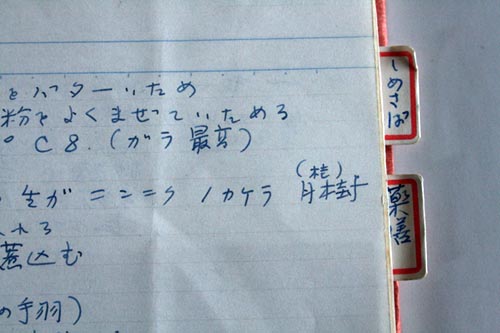 をバターいため
粉をよくまぜていためる
C8.(ガラ 最高)
(桂)
生が ニンニク 1カケラ 月桂
入れる
煮込む
の手羽)
しめさば
薬善